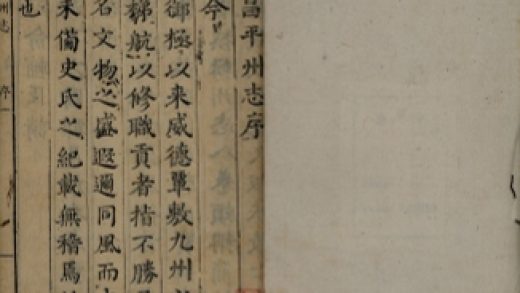 昌平州志序
今
御極以来威德覃敷九州
梯航以修職貢者指不勝
名文物之盛遐邇同風而
未備史氏之紀載無稽焉
也
州志 序 一